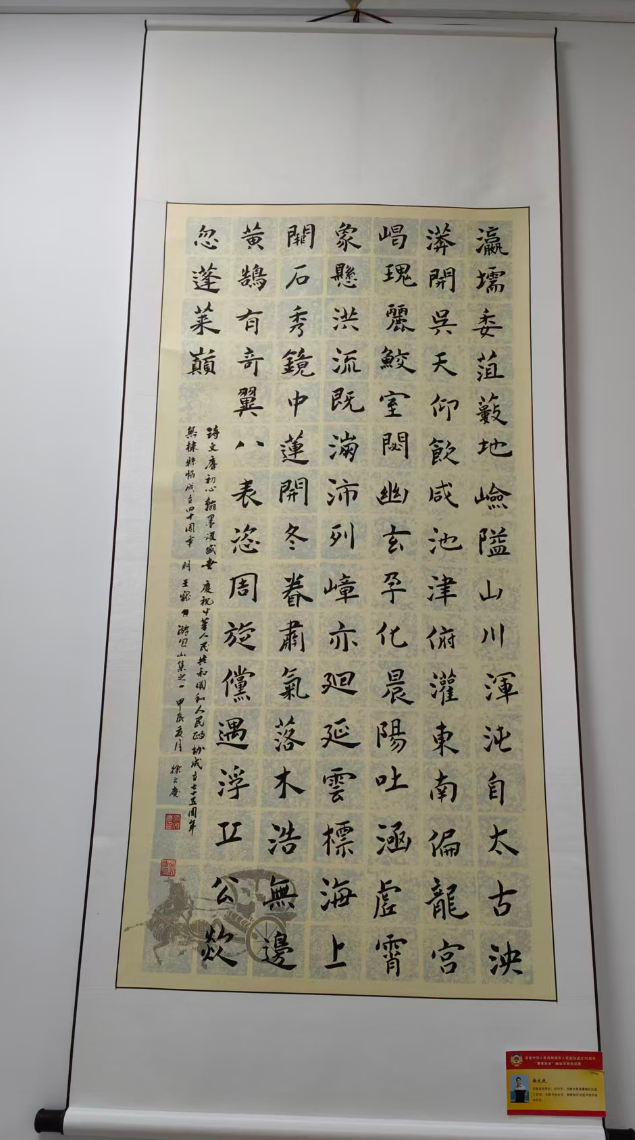 瀛壖委菹藪地嶮隘山川渾沌自太古泱
漭開吳天仰飲咸池津俯灌東南偏龍宮
嵑瑰麗鮫室閟幽玄孕化晨陽吐涵虛霄
象懸洪流既滿沛列嶂亦迴延雲標海上
關石秀鏡中蓮開冬眷肅氣落木浩無邊
黃鵠有奇翼八表恣周旋儻遇浮丘公欻
忽蓬萊巔
初心翰墨盛世慶祝中華人民共和國和人民政協成立七十五周年
無棣縣成立四十周年山集之一甲辰夏月徐